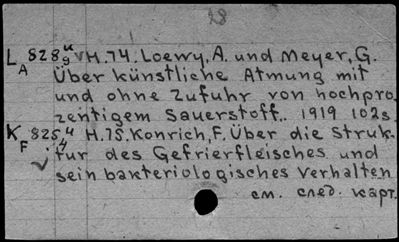 28
L A 828 u/g √ H. 74. Loewy, A. und Meyer, G.
Über künstliche Atmung mit
und ohne Zufuhr von hochpro
zentigem Sauerstoff.. 1919 102s.
K F 825 4/4 H. 75. Konrich, F. Über die Struk-
√ tur des Gefrierfleisches und
sein bakteriologisches Verhalten
см. след. карт.